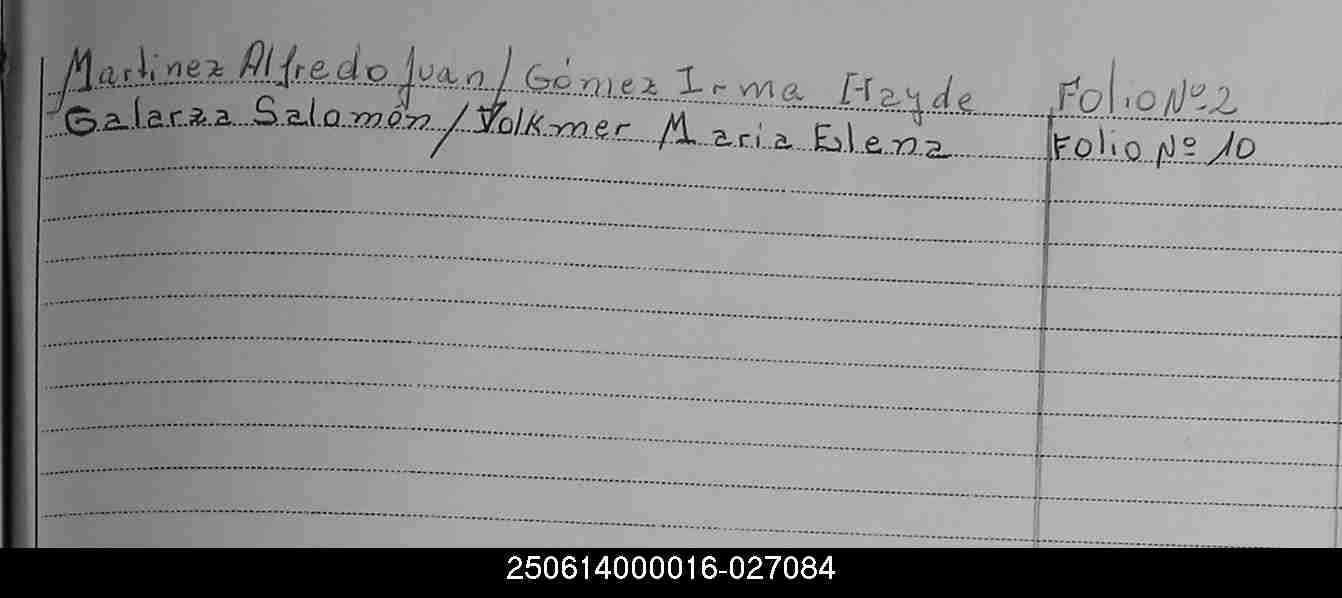 Martinez Alfredo Juan / Gómez Irma Hayde Folio Nº 2
Galarza Salomón / Volkmer Maria Elena Folio Nº 10
250614000016-027084